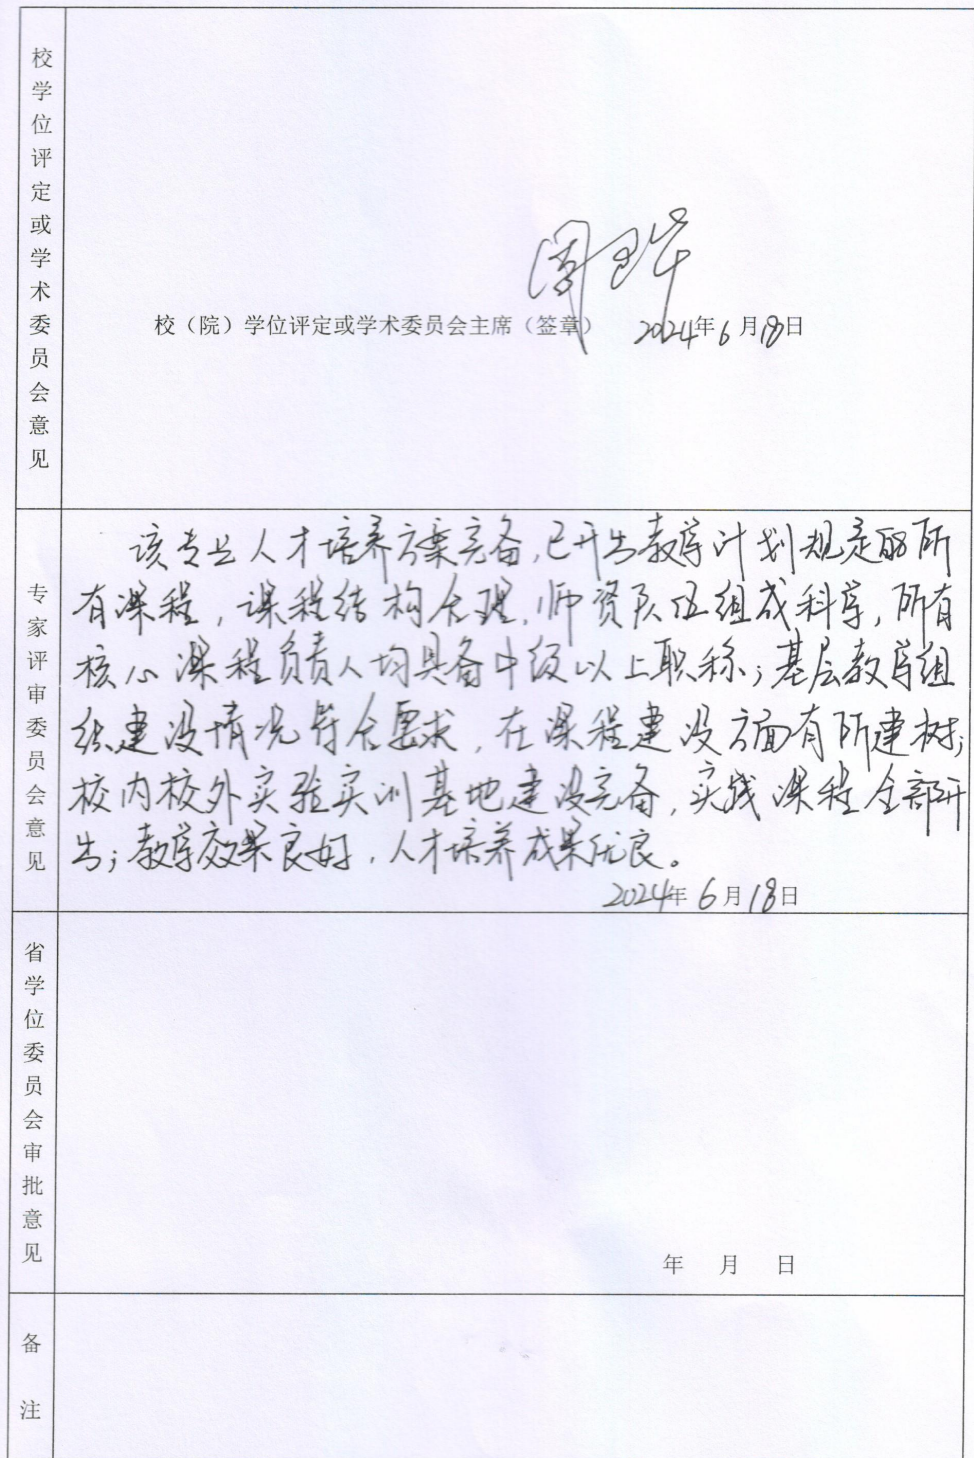 校学位评定或学术委员会意见
校（院）学位评定或学术委员会主席（签章） 2024年6月18日
专家评审委员会意见
该专业人才培养方案完备，已开出教学计划规定的所
有课程，课程结构合理，师资队伍组成科学，所有
核心课程负责人均具备中级以上职称；基层教学组
织建设情况符合要求，在课程建设方面有所建树；
校内校外实验实训基地建设完备，实践课程全部开
出；教学效果良好，人才培养成果优良。
2024年6月18日
省学位委员会审批意见
年 月 日
备注